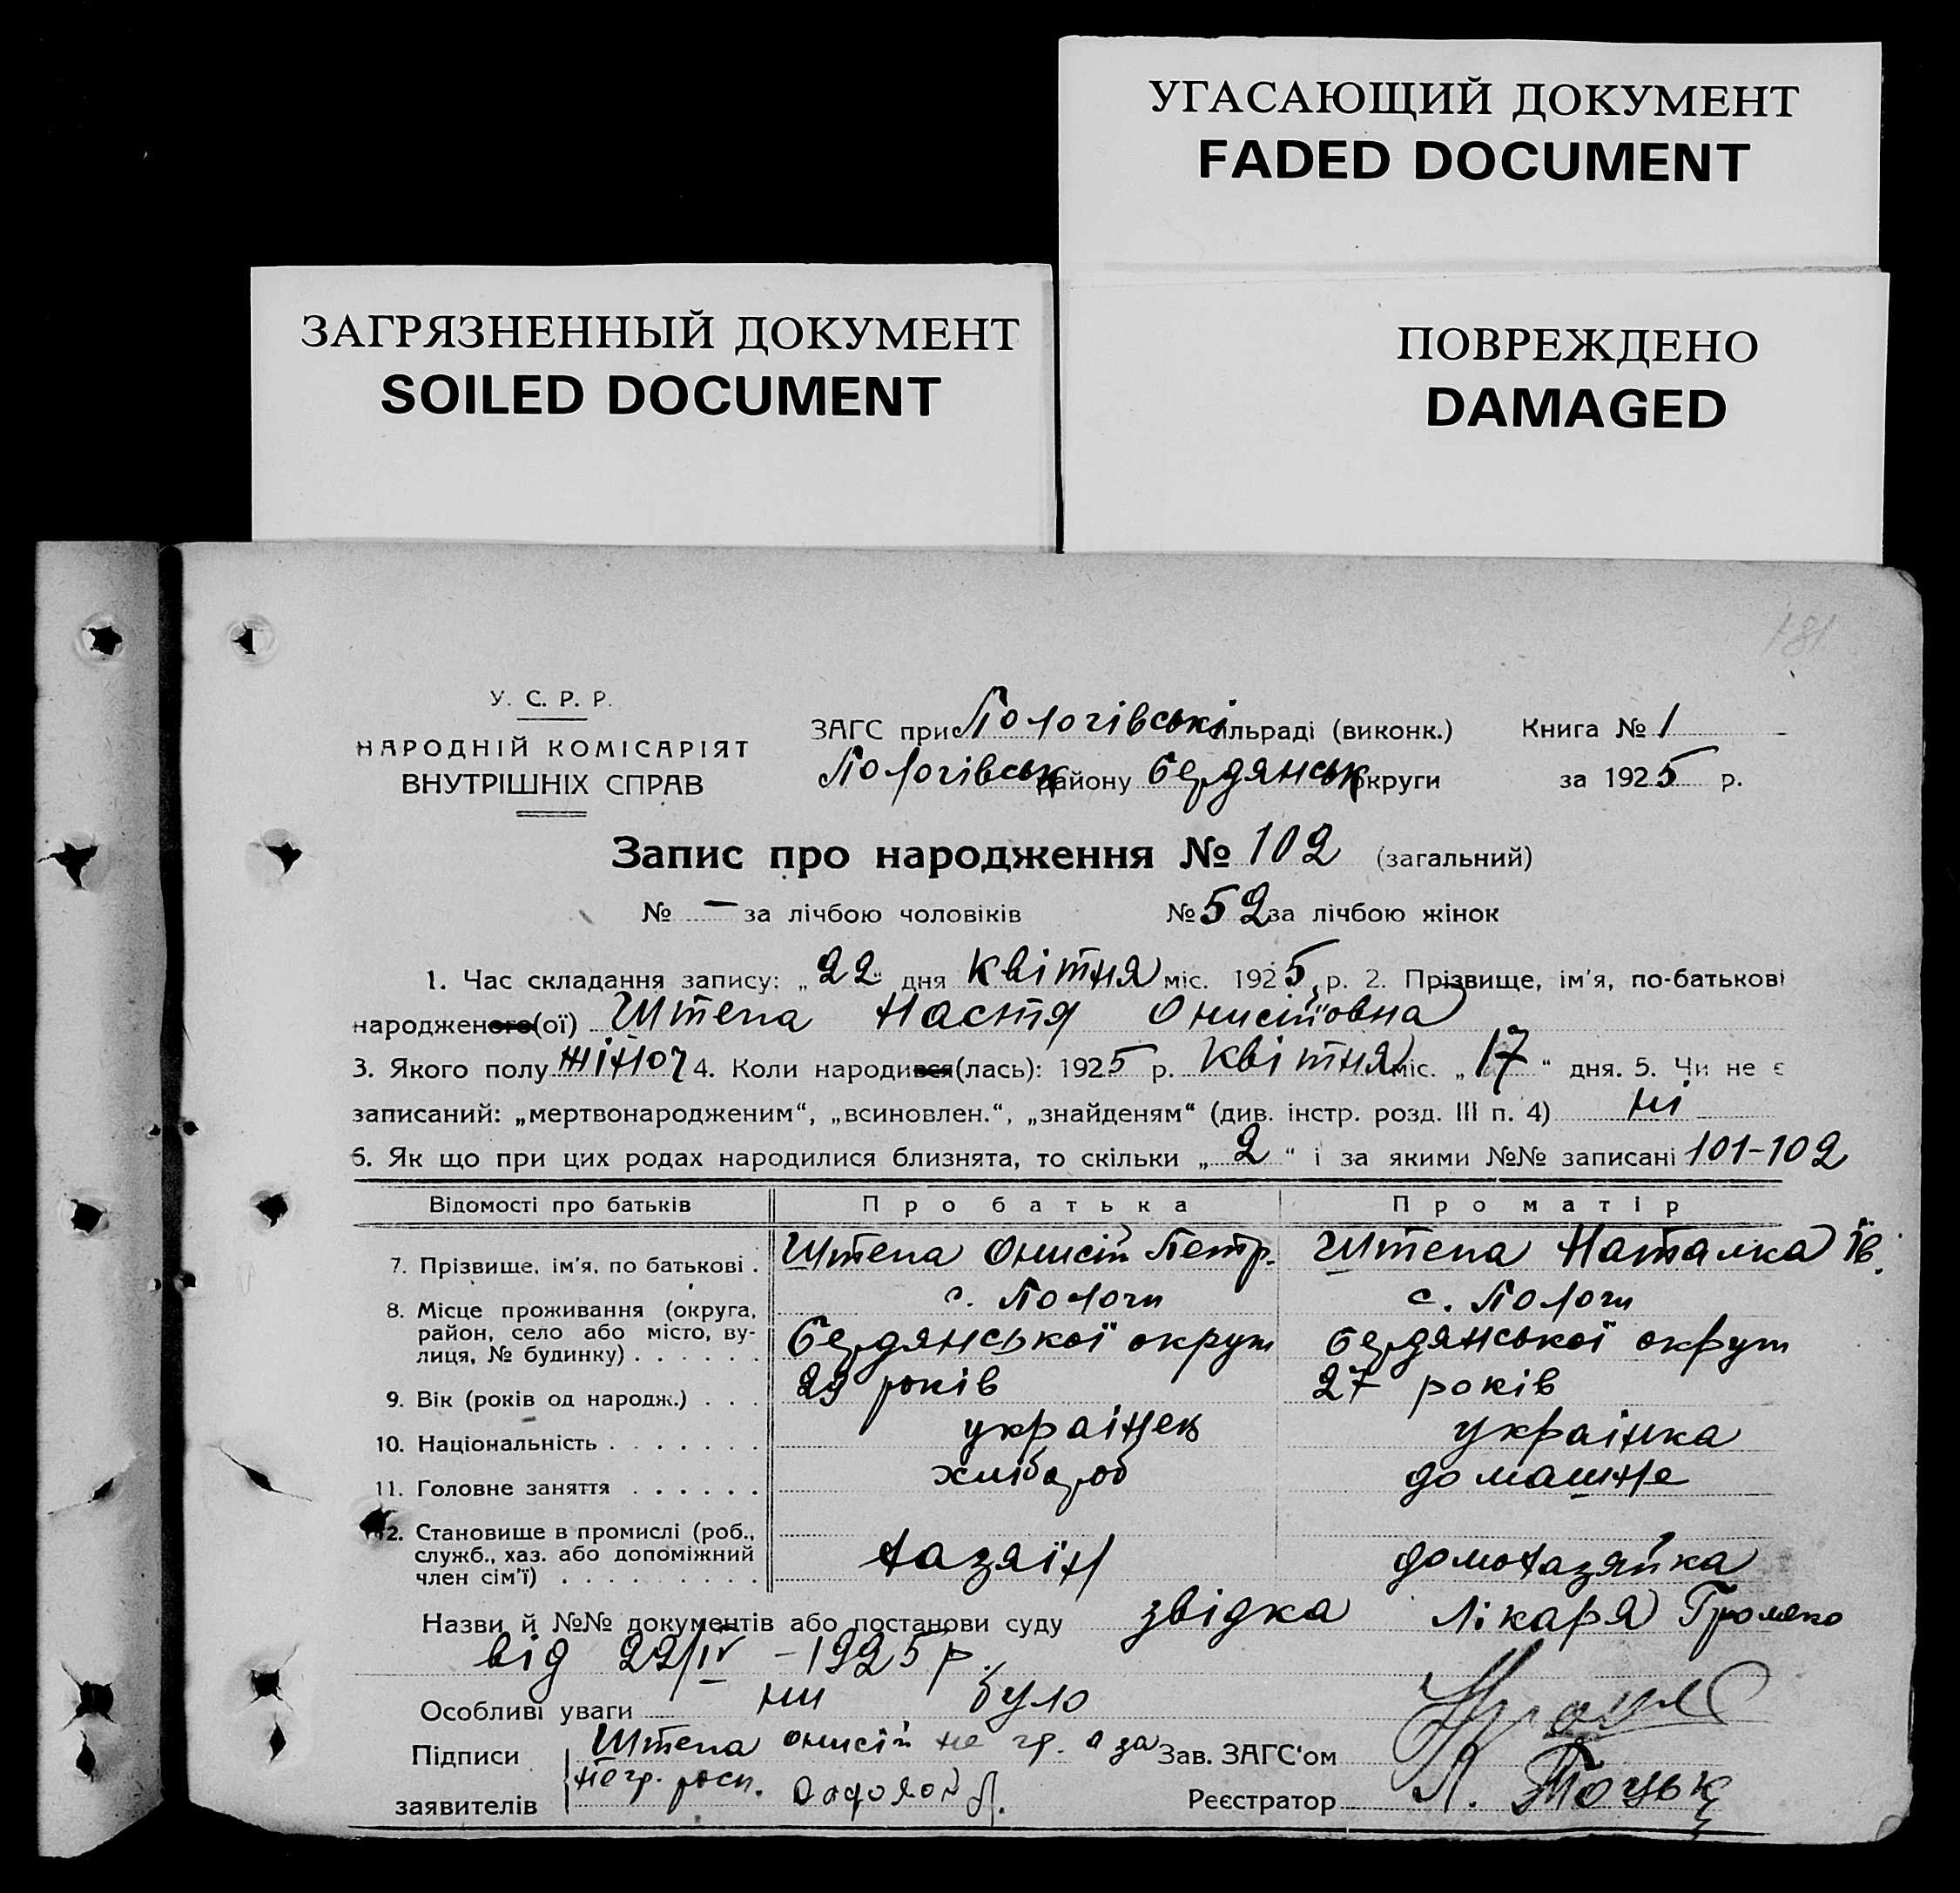 УГАСАЮЩИЙ ДОКУМЕНТ
FADED DOCUMENT
ЗАГРЯЗНЕННЫЙ ДОКУМЕНТ
SOILED DOCUMENT
ПОВРЕЖДЕНО
DAMAGED
181
У. С. Р. Р.
НАРОДНІЙ КОМІСАРІЯТ
ВНУТРІШНІХ СПРАВ
ЗАГС при Пологівські сільраді (виконк.) Книга № 1
Пологівськ району Бердянськ округи за 1925 р.
Запис про народження № 102 (загальний)
№ — за лічбою чоловіків № 52 за лічбою жінок
1. Час складання запису: „22“ дня квітня міс. 1925 р. 2. Прізвище, ім'я, по-батькові
народженого(ої) Штепа Настя Онисіївна
3. Якого полу жіноч 4. Коли народився(лась): 1925 р. квітня міс. „17“ дня. 5. Чи не є
записаний: „мертвонародженим“, „всиновлен.“, „знайденям“ (див. інстр. розд. III п. 4) ні
6. Як що при цих родах народилися близнята, то скільки „2“ і за якими №№ записані 101-102
Відомості про батьків Про батька Про матір
7. Прізвище, ім'я, по батькові . Штепа Онисій Петр. Штепа Наталка Ів.
8. Місце проживання (округа, район, село або місто, вулиця, № будинку) . . . . . . с. Пологи Бердянської округи с. Пологи Бердянської округи
9. Вік (років од народж.) . . . 29 років 27 років
10. Національність . . . . . . . українець українка
11. Головне заняття . . . . . . хлібороб домашне
12. Становище в промислі (роб., служб., хаз. або допоміжний член сім'ї) . . . . . . . . . хазяїн домохазяйка
Назви й №№ документів або постанови суду звідка лікаря Громеко
від 22/IV -1925 р.
Особливі уваги ни було
Підписи Штепа Онисій не гр. а за Зав. ЗАГС'ом
заявителів негр. росп. Реєстратор Л.